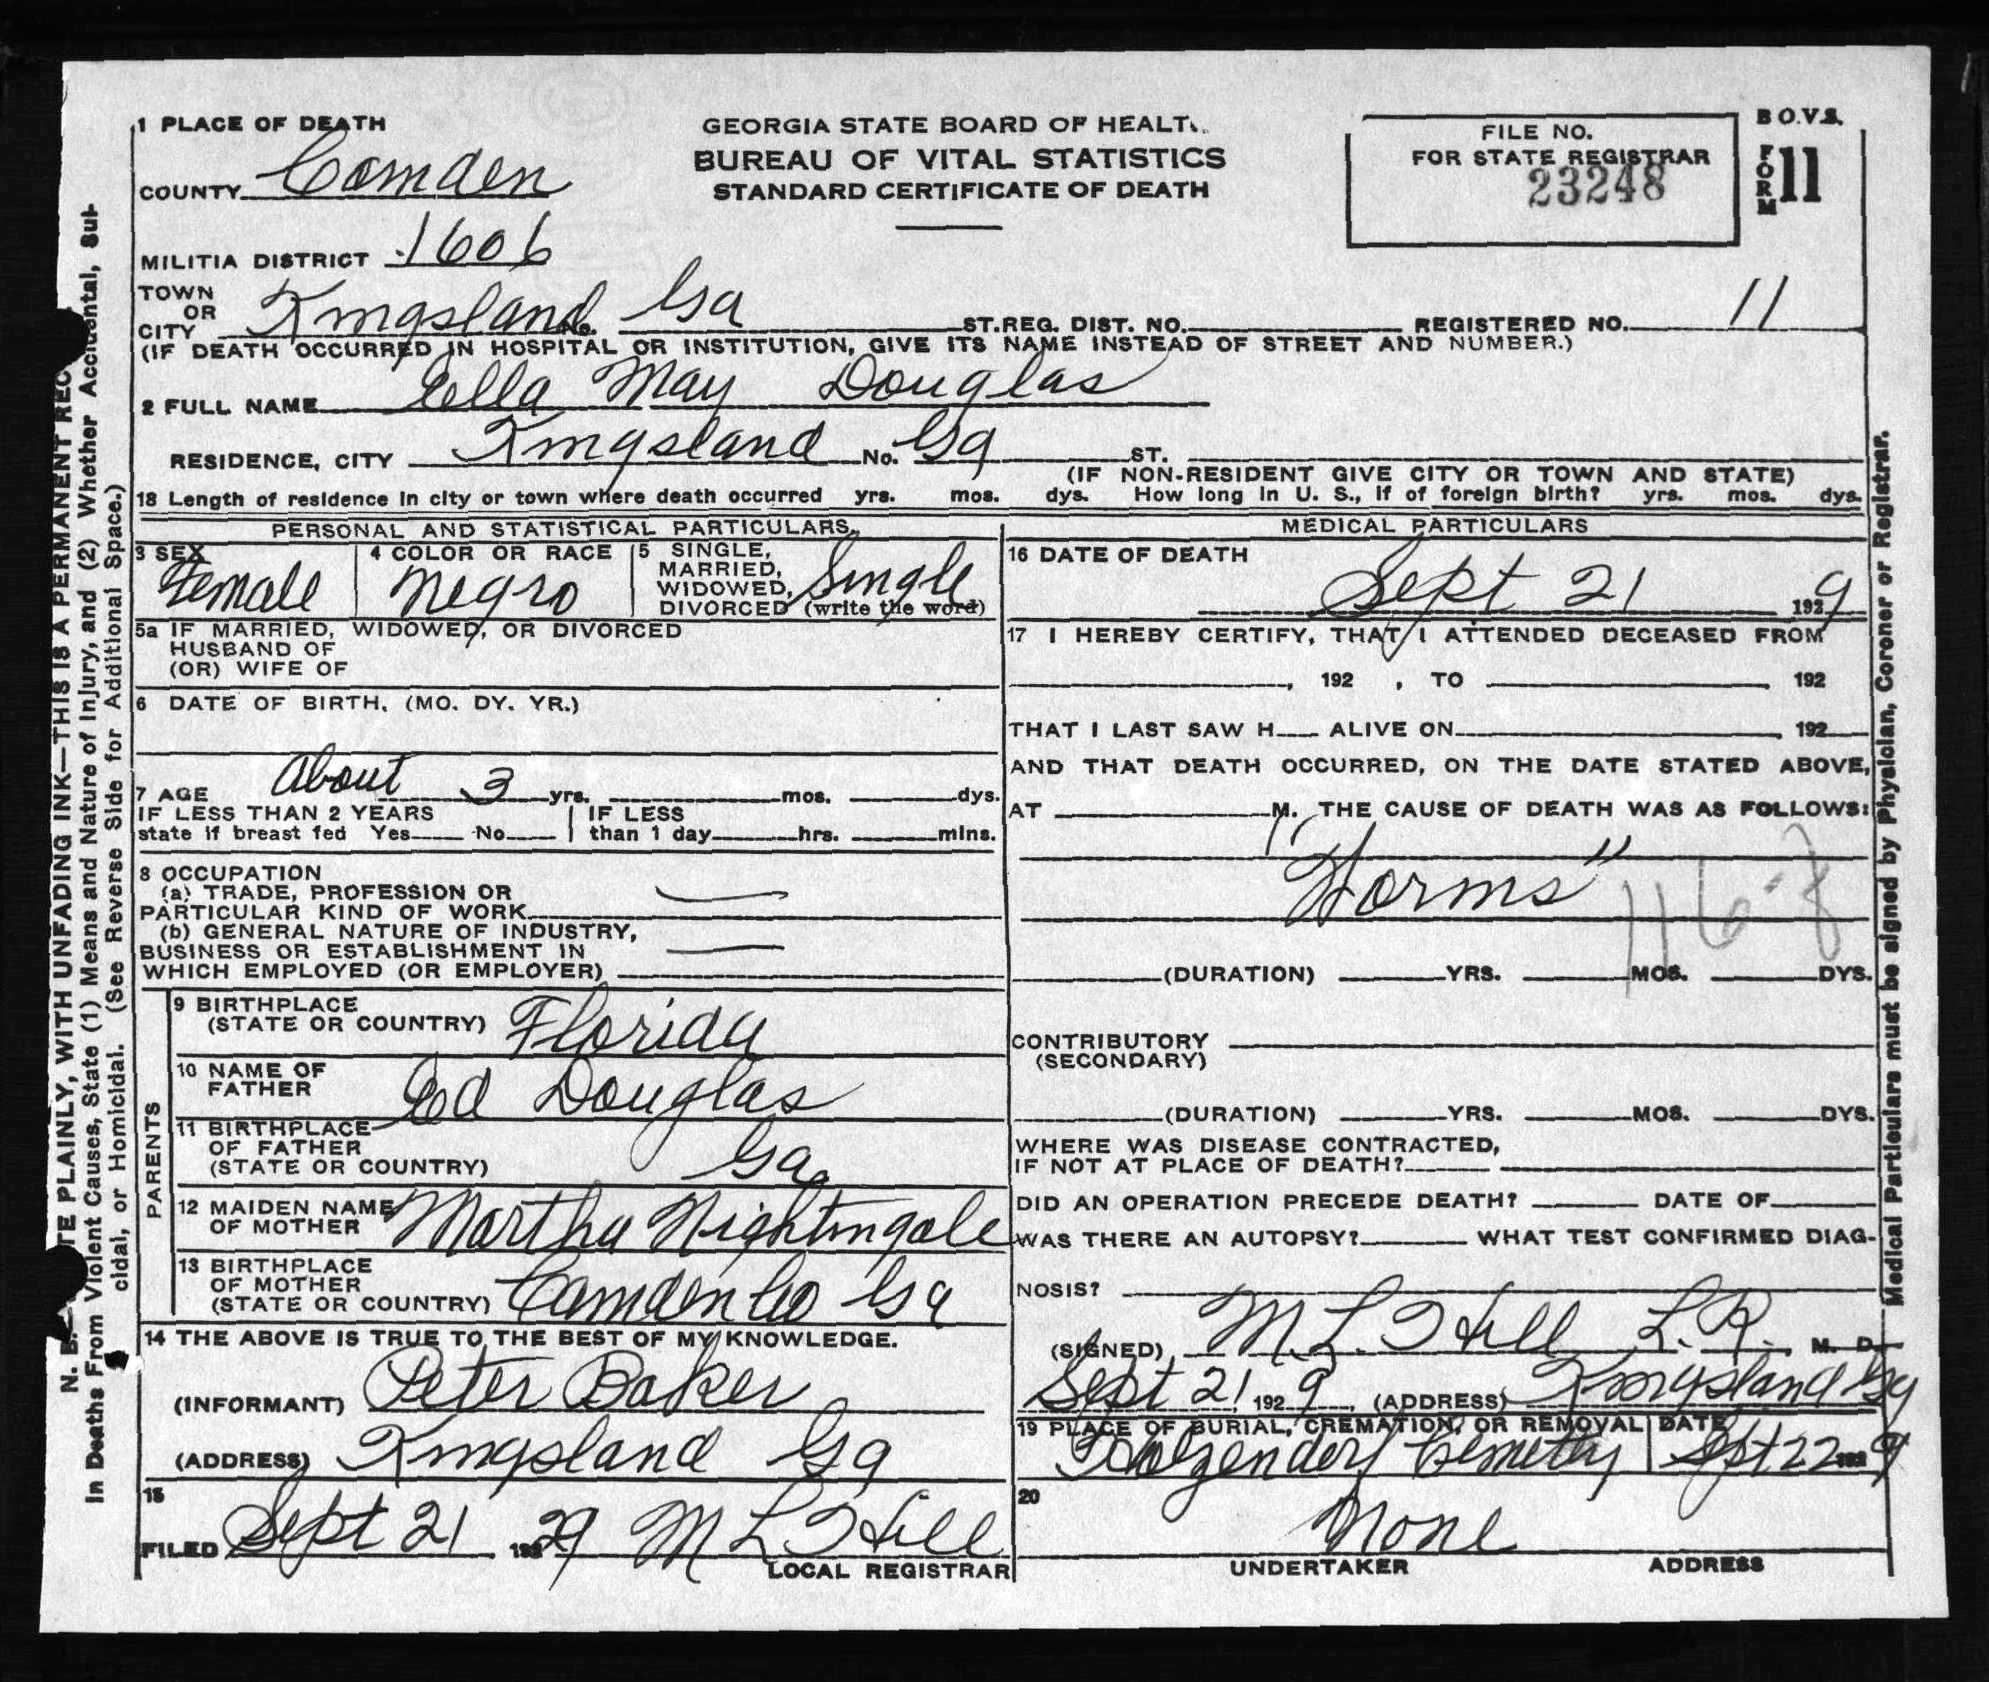 1 PLACE OF DEATH
GEORGIA STATE BOARD OF HEALT
BUREAU OF VITAL STATISTICS
STANDARD CERTIFICATE OF DEATH
FILE NO.
FOR STATE REGISTRAR
23248
B.O.V.S.
FORM 11
COUNTY Camden
MILITIA DISTRICT 1606
TOWN OR CITY Kingsland No. Ga ST. REG. DIST. NO. REGISTERED NO. 11
(IF DEATH OCCURRED IN HOSPITAL OR INSTITUTION, GIVE ITS NAME INSTEAD OF STREET AND NUMBER.)
2 FULL NAME Ella May Douglas
RESIDENCE, CITY Kingsland No. Ga ST.
(IF NON-RESIDENT GIVE CITY OR TOWN AND STATE)
18 Length of residence in city or town where death occurred yrs. mos. dys. How long in U. S., if of foreign birth? yrs. mos. dys.
PERSONAL AND STATISTICAL PARTICULARS
3 SEX Female
4 COLOR OR RACE Negro
5 SINGLE, MARRIED, WIDOWED, DIVORCED (write the word) Single
5a IF MARRIED, WIDOWED, OR DIVORCED
HUSBAND OF
(OR) WIFE OF
6 DATE OF BIRTH, (MO. DY. YR.)
7 AGE About 3 yrs. mos. dys.
IF LESS THAN 2 YEARS
state if breast fed Yes No
IF LESS
than 1 day hrs. mins.
8 OCCUPATION
(a) TRADE, PROFESSION OR
PARTICULAR KIND OF WORK
(b) GENERAL NATURE OF INDUSTRY,
BUSINESS OR ESTABLISHMENT IN
WHICH EMPLOYED (OR EMPLOYER)
PARENTS
9 BIRTHPLACE
(STATE OR COUNTRY) Florida
10 NAME OF
FATHER Ed Douglas
11 BIRTHPLACE
OF FATHER
(STATE OR COUNTRY) Ga.
12 MAIDEN NAME
OF MOTHER Martha Nightingale
13 BIRTHPLACE
OF MOTHER
(STATE OR COUNTRY) Camden Co Ga
14 THE ABOVE IS TRUE TO THE BEST OF MY KNOWLEDGE.
(INFORMANT) Peter Baker
(ADDRESS) Kingsland Ga
15
FILED Sept 21 1929 M L Hill
LOCAL REGISTRAR
MEDICAL PARTICULARS
16 DATE OF DEATH
Sept 21 1929
17 I HEREBY CERTIFY, THAT I ATTENDED DECEASED FROM
, 192 , TO 192
THAT I LAST SAW H ALIVE ON 192
AND THAT DEATH OCCURRED, ON THE DATE STATED ABOVE,
AT M. THE CAUSE OF DEATH WAS AS FOLLOWS:
"Worms"
116
(DURATION) YRS. MOS. DYS.
CONTRIBUTORY
(SECONDARY)
(DURATION) YRS. MOS. DYS.
WHERE WAS DISEASE CONTRACTED,
IF NOT AT PLACE OF DEATH?
DID AN OPERATION PRECEDE DEATH? DATE OF
WAS THERE AN AUTOPSY? WHAT TEST CONFIRMED DIAG-
NOSIS?
(SIGNED) M. L. Hill L.R. M. D.
Sept 21, 1929, (ADDRESS) Kingsland Ga
19 PLACE OF BURIAL, CREMATION, OR REMOVAL DATE
Holzendorf Cemetery Sept 22 1929
20
None
UNDERTAKER ADDRESS
N. B. TE PLAINLY, WITH UNFADING INK—THIS IS A PERMANENT REC
In Deaths From Violent Causes, State (1) Means and Nature of Injury, and (2) Whether Accidental, Sui-
cidal, or Homicidal. (See Reverse Side for Additional Space.)
Medical Particulars must be signed by Physician, Coroner or Registrar.